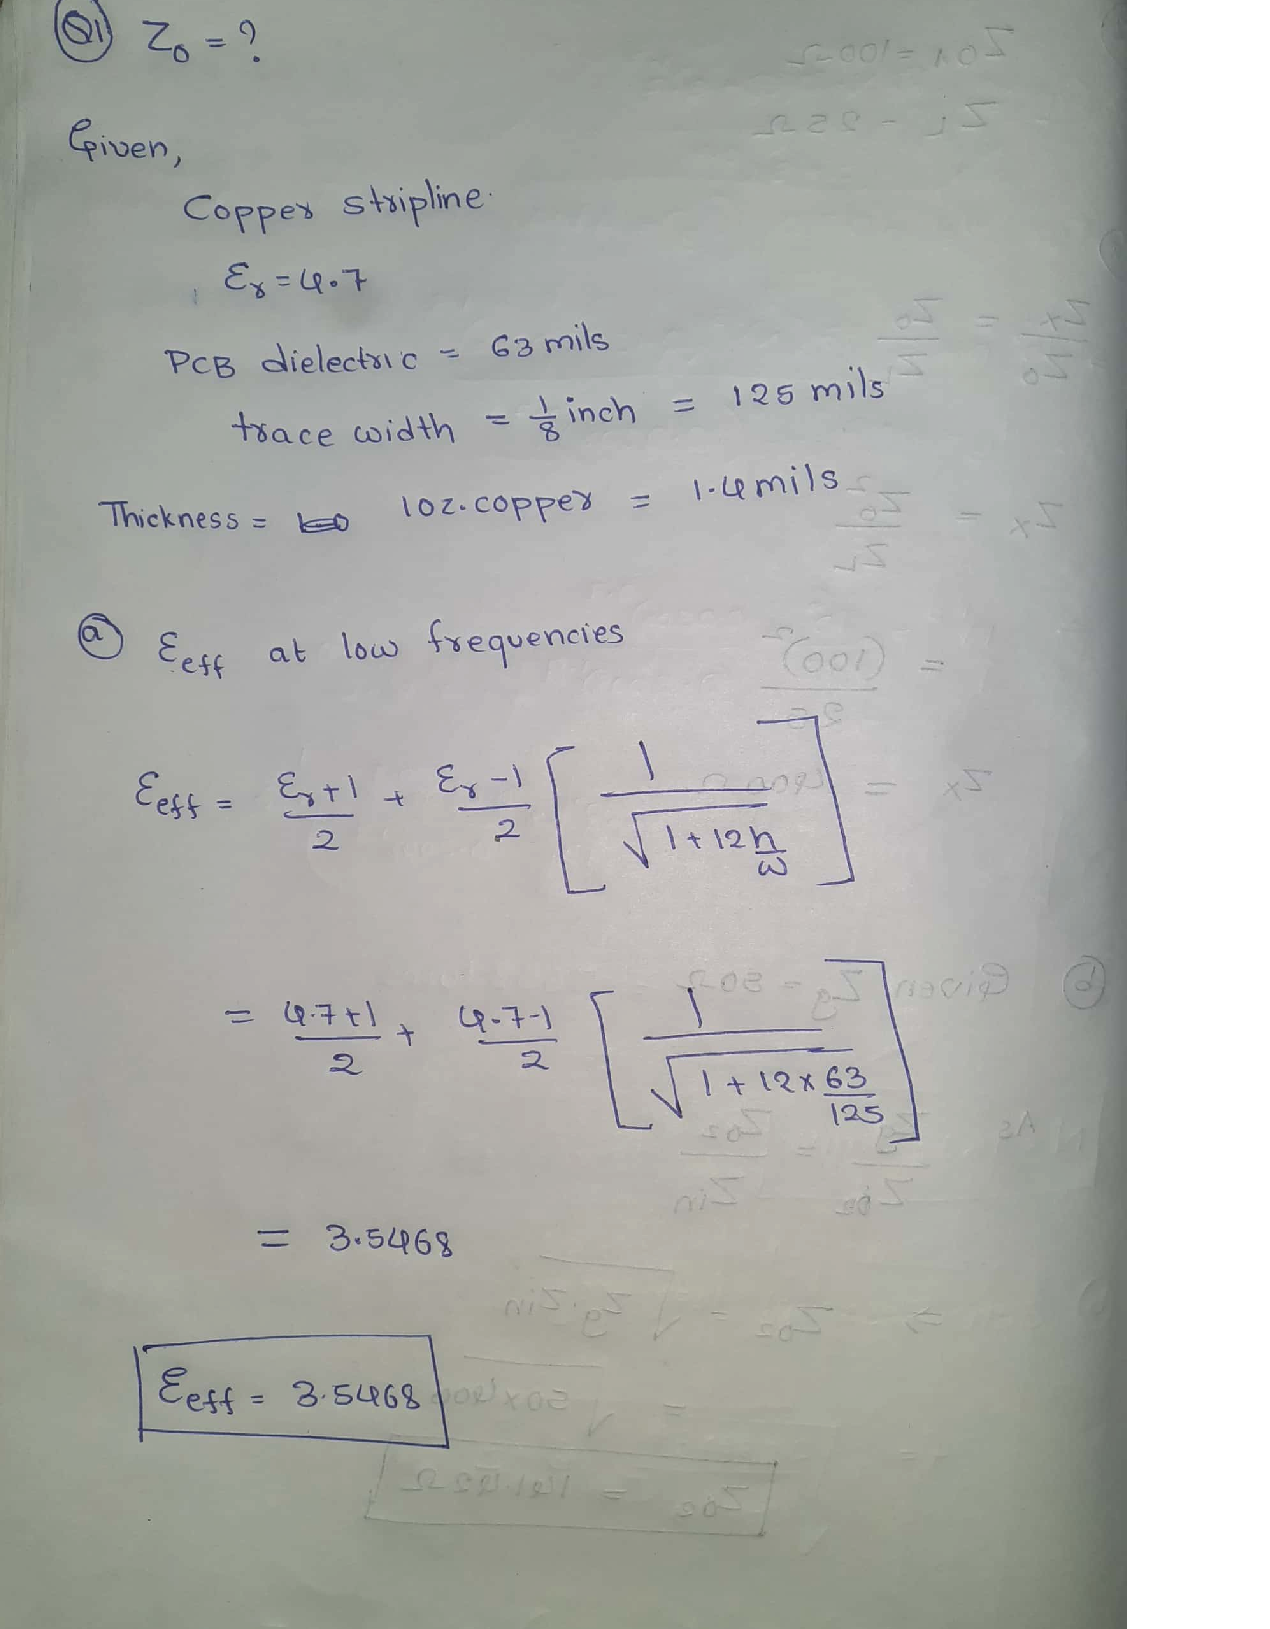 Q1 Z₀ = ?
Given,
Copper stripline.
Ɛr = 4.7
PCB dielectric = 63 mils
trace width = 1/8 inch = 125 mils
Thickness = 1oz. copper = 1.4 mils
(a) Ɛeff at low frequencies
Ɛeff = (Ɛr+1)/2 + (Ɛr-1)/2 [ 1/√(1+12 h/w) ]
= (4.7+1)/2 + (4.7-1)/2 [ 1/√(1+12×63/125) ]
= 3.5468
Ɛeff = 3.5468